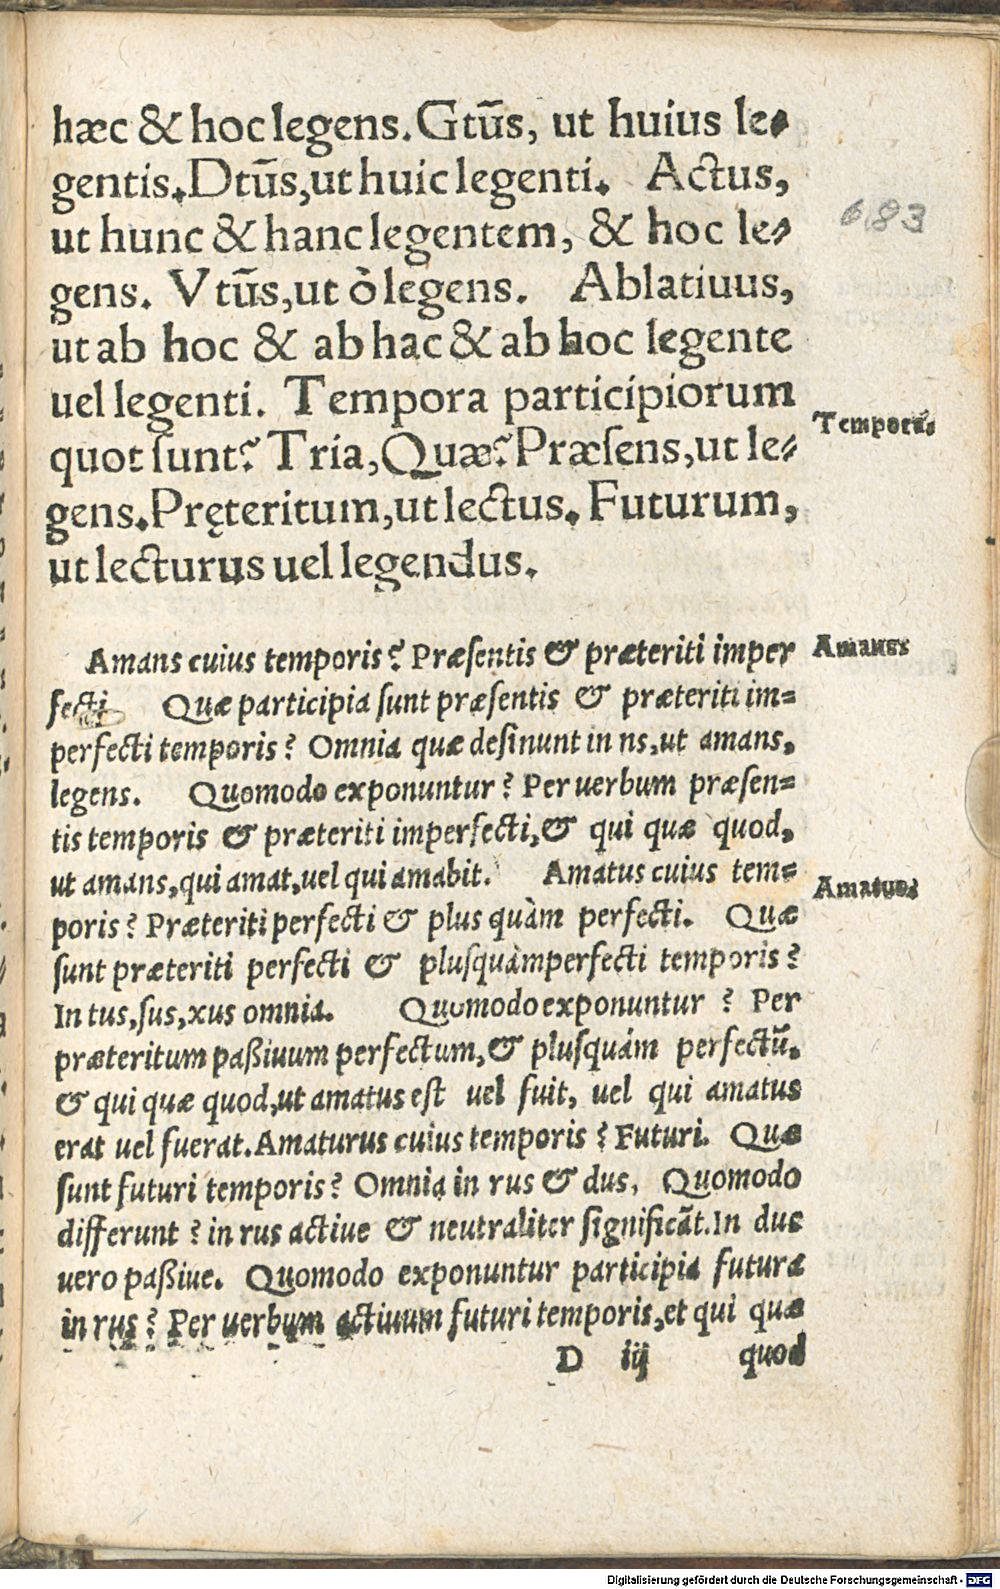 hæc & hoc legens. Gtūs, ut huius le⸗
gentis. Dtūs, ut huic legenti. Actus,
ut hunc & hanc legentem, & hoc le⸗
gens. Vtūs, ut ò legens. Ablatiuus,
ut ab hoc & ab hac & ab hoc legente
uel legenti. Tempora participiorum
Tempora.
quot ſunt? Tria, Quæ? Præſens, ut le⸗
gens. Pręteritum, ut lectus. Futurum,
ut lecturus uel legendus.
683
Amans cuius temporis? Præſentis & præteriti imper
Amans
fecti Quæ participia ſunt præſentis & præteriti im⸗
perfecti temporis? Omnia quæ deſinunt in ns, ut amans,
legens. Quomodo exponuntur? Per uerbum præſen⸗
tis temporis & præteriti imperfecti, & qui quæ quod,
ut amans, qui amat, uel qui amabit. Amatus cuius tem⸗
Amatus
poris? Præteriti perfecti & plus quàm perfecti. Quæ
ſunt præteriti perfecti & pluſquàmperfecti temporis?
In tus, ſus, xus omnia. Quomodo exponuntur? Per
præteritum paßiuum perfectum, & pluſquám perfectū.
& qui quæ quod, ut amatus eſt uel fuit, uel qui amatus
erat uel fuerat. Amaturus cuius temporis? Futuri. Quæ
ſunt futuri temporis? Omnia in rus & dus, Quomodo
differunt? in rus actiue & neutraliter ſignificāt. In dus
uero paßiue. Quomodo exponuntur participia futura
in rus? Per uerbum actiuum futuri temporis, et qui quæ
D iij quod
Digitalisierung gefördert durch die Deutsche Forschungsgemeinschaft - DFG